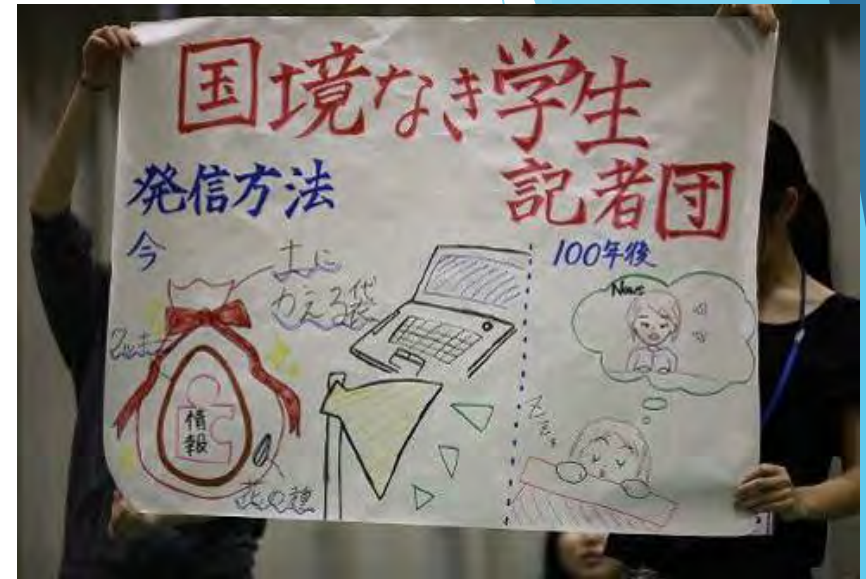 国境なき学生
記者団
発信方法
今
土に
かえる袋
情報
花の種
100年後
News